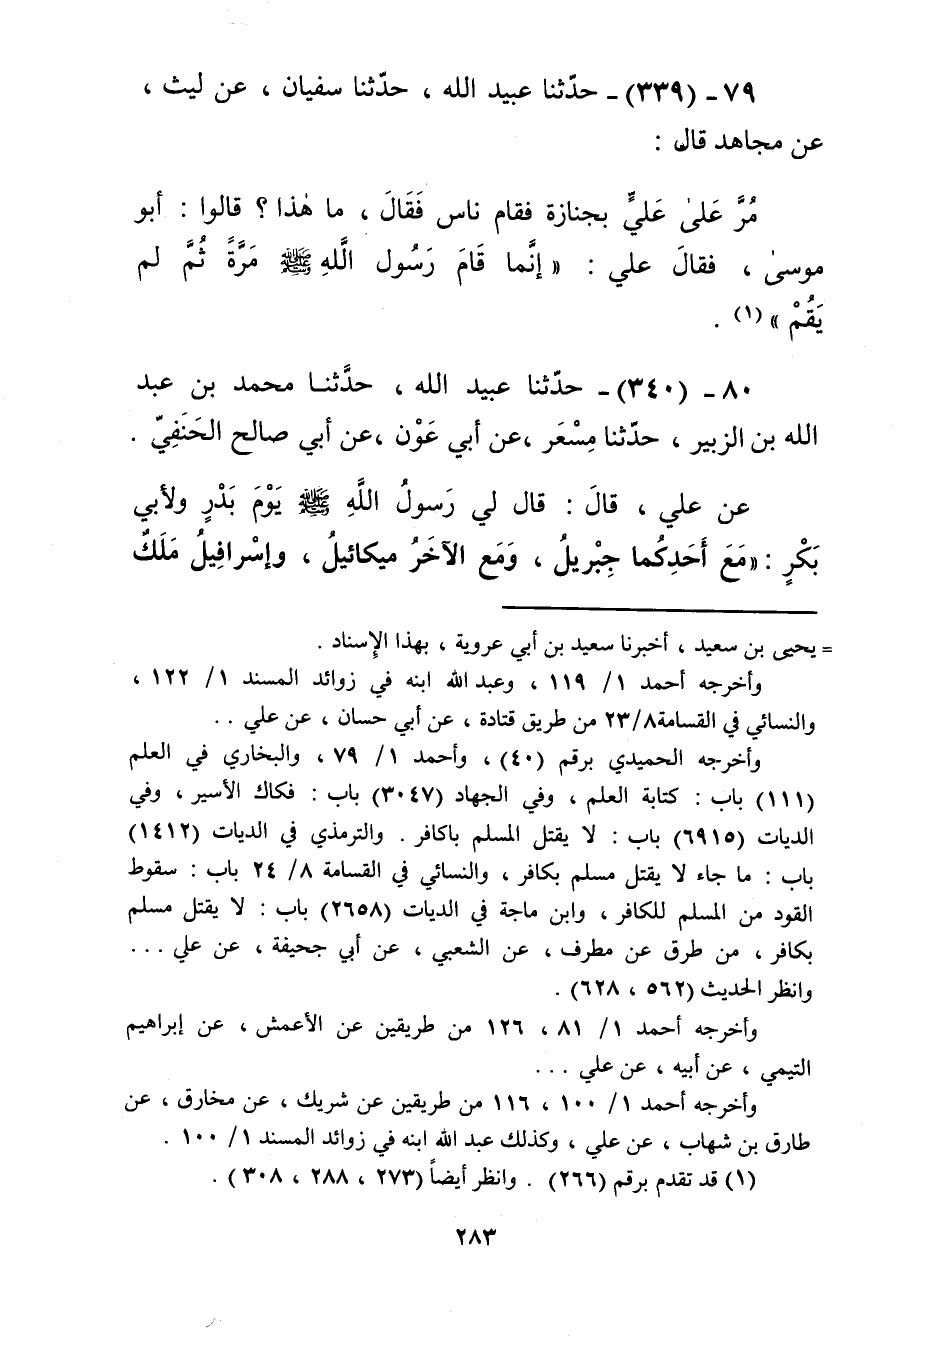 ٧٩ ـ (٣٣٩) ـ حدّثنا عبيد الله ، حدّثنا سفيان ، عن ليث ،
عن مجاهد قال :
مُرَّ عَلىٰ عَليٍّ بجنازة فقام ناس فَقَالَ ، ما هٰذا ؟ قالوا : أبو
موسىٰ ، فقالَ علي : « إنَّما قَامَ رَسُول اللَّهِ ﷺ مَرَّةً ثُمَّ لم
يَقُمْ » (١) .
٨٠ ـ (٣٤٠) ـ حدّثنا عبيد الله ، حدَّثنـا محمد بن عبد
الله بن الزبير ، حدّثنا مِسْعَر ،عن أبي عَوْن ،عن أبي صالح الحَنَفِيّ .
عن علي ، قالَ : قال لي رَسولُ اللَّهِ ﷺ يَوْمَ بَدْرٍ ولأبي
بَكْرٍ : «مَعَ أَحَدِكُما جِبْريلُ ، وَمَع الآخَرُ ميكائيلُ ، وإسْرافِيلُ مَلَكٌ
= يحيى بن سعيد ، أخبرنا سعيد بن أبي عروية ، بهذا الإسناد .
وأخرجه أحمد ١/ ١١٩ ، وعبد الله ابنه في زوائد المسند ١/ ١٢٢ ،
والنسائي في القسامة٢٣/٨ من طريق قتادة ، عن أبي حسان ، عن علي ..
وأخرجه الحميدي برقم (٤٠) ، وأحمد ١/ ٧٩ ، والبخاري في العلم
(١١١) باب : كتابة العلم ، وفي الجهاد (٣٠٤٧) باب : فكاك الأسير ، وفي
الديات (٦٩١٥) باب : لا يقتل المسلم باكافر . والترمذي في الديات (١٤١٢)
باب : ما جاء لا يقتل مسلم بكافر ، والنسائي في القسامة ٨/ ٢٤ باب : سقوط
القود من المسلم للكافر ، وابن ماجة في الديات (٢٦٥٨) باب : لا يقتل مسلم
بكافر ، من طرق عن مطرف ، عن الشعبي ، عن أبي جحيفة ، عن علي ...
وانظر الحديث (٥٦٢ ، ٦٢٨) .
وأخرجه أحمد ١/ ٨١ ، ١٢٦ من طريقين عن الأعمش ، عن إبراهيم
التيمي ، عن أبيه ، عن علي ...
وأخرجه أحمد ١/ ١٠٠ ، ١١٦ من طريقين عن شريك ، عن مخارق ، عن
طارق بن شهاب ، عن علي ، وكذلك عبد الله ابنه في زوائد المسند ١/ ١٠٠ .
(١) قد تقدم برقم (٢٦٦) . وانظر أيضاً (٢٧٣ ، ٢٨٨ ، ٣٠٨) .
٢٨٣